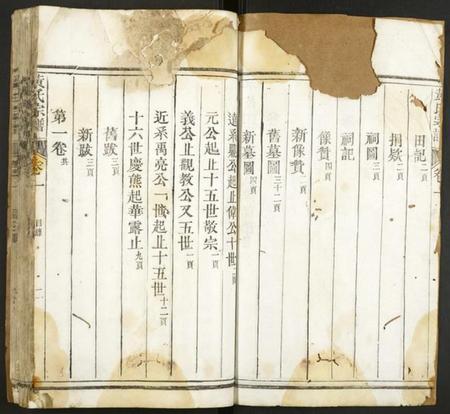 田記二頁
捐欵二頁
祠圖三頁
祠記
像贊四頁
新像贊一頁
舊墓圖三十二頁
新墓圖四頁
遠系顯公起止偉公十世
元公起止十五世敬宗一頁
義公止觀教公又五世一頁
近系禹亮公一世起止十五世十二頁
十六世慶熊起華露止九頁
舊跋三頁
新跋三頁
第一卷共
黃氏宗譜 卷一 目錄